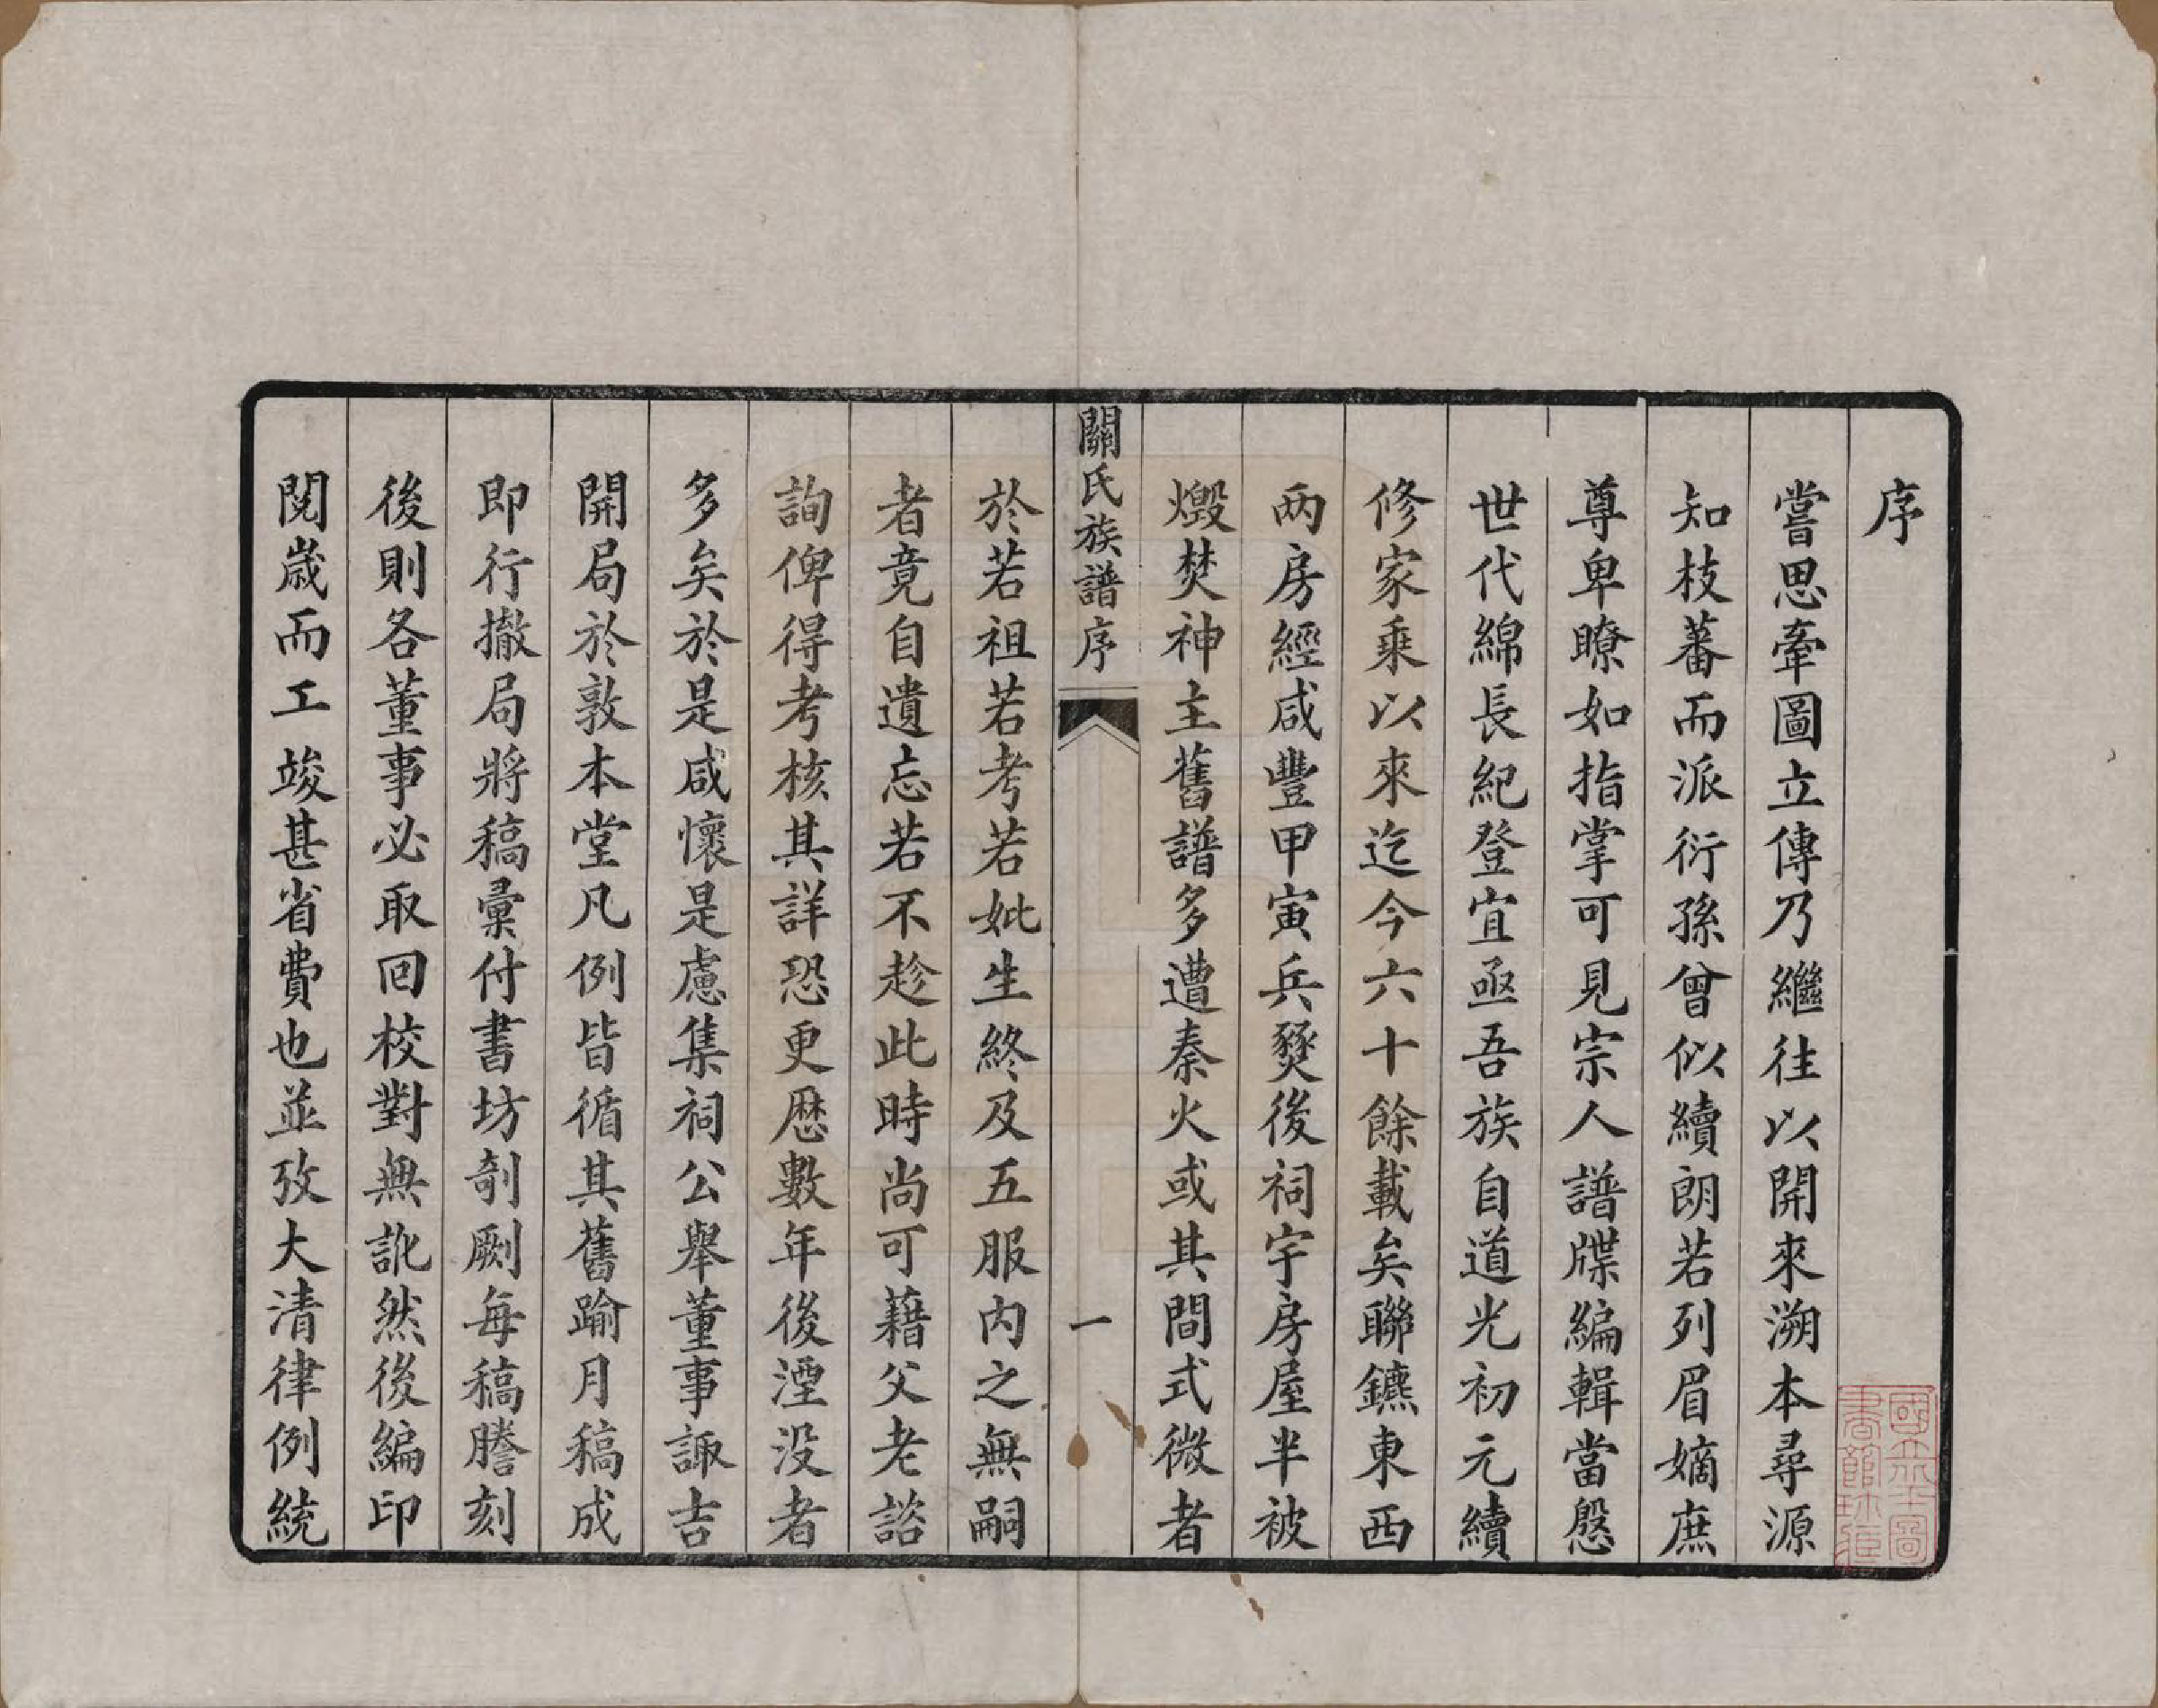 序
嘗思牽圖立傳乃繼往以開來溯本尋源
知枝蕃而派衍孫曾似續朗若列眉嫡庶
尊卑瞭如指掌可見宗人譜牒編輯當慇
世代綿長紀登宜亟吾族自道光初元續
修家乘以來迄今六十餘載矣聯鑣東西
兩房經咸豐甲寅兵燹後祠宇房屋半被
燬焚神主舊譜多遭秦火或其間式微者
關氏族譜序
一
於若祖若考若妣生終及五服內之無嗣
者竟自遺忘若不趁此時尚可藉父老諮
詢俾得考核其詳恐更歷數年後湮没者
多矣於是咸懷是慮集祠公舉董事諏吉
開局於敦本堂凡例皆循其舊踰月稿成
即行撤局將稿彙付書坊剞劂每稿謄刻
後則各董事必取回校對無訛然後編印
閱歲而工竣甚省費也並攷大清律例統
國立北平圖
書館珍藏